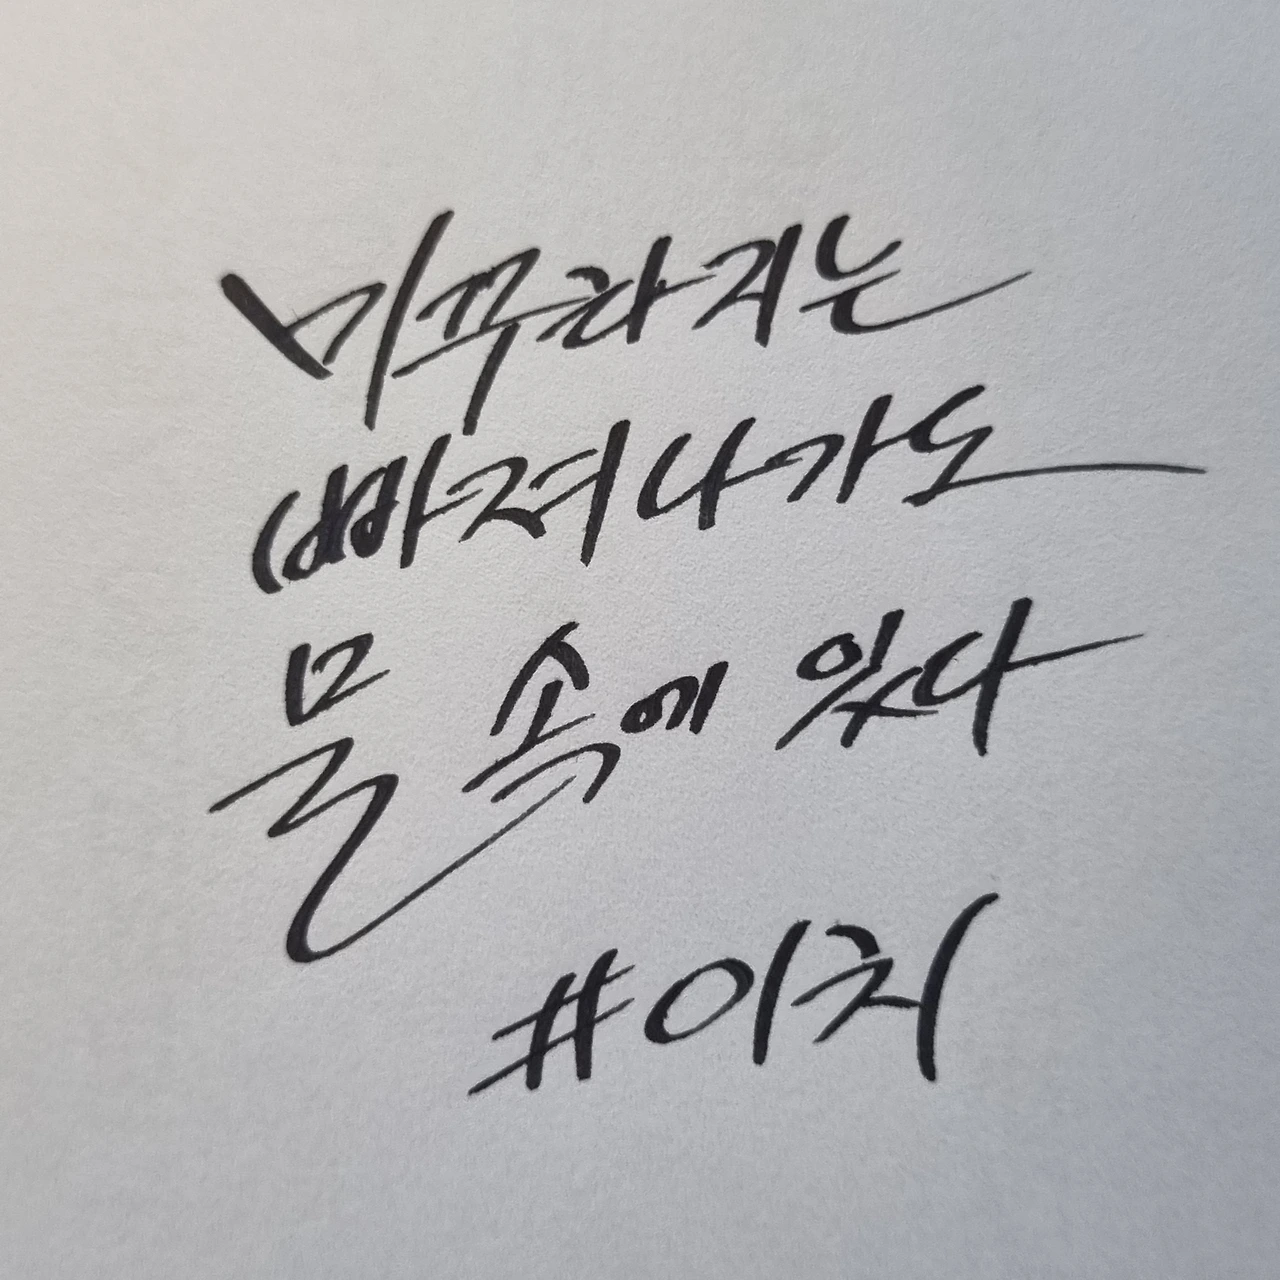 미꾸라지는
빠져나가도
물 속에 있다
#이치